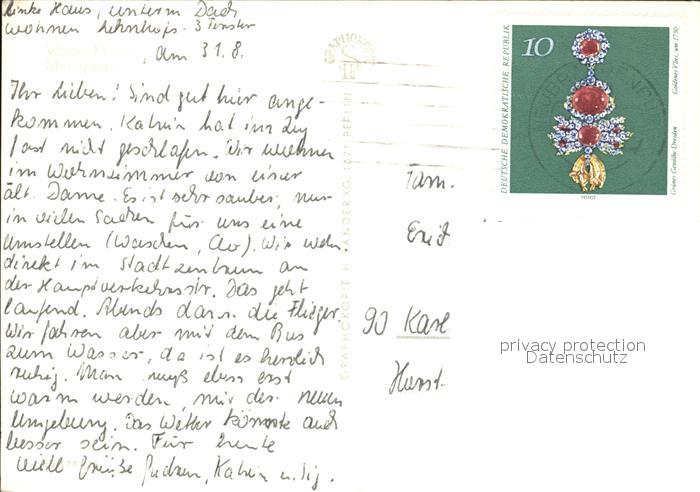 Linke Haus, unterm Dach
wohnen 3 Fenster
am 31.8.
Ihr Lieben! Sind gut hier ange-
kommen. Katrin hat im Zug
fast nicht geschlafen. Wir wohnen
im Wohnzimmer von einer
ält. Dame. Es ist sehr sauber, nur
in vielen Sachen für uns eine
Umstellen (Waschen, Clo). Wir wohn
direkt im Stadtzentrum an
der Hauptverkehrsstr. Das geht
laufend. Abends dann die Flieger.
Wir fahren aber mit dem Bus
zum Wasser, da ist es herrlich
ruhig. Man muß eben erst
warm werden, mit der neuen
Umgebung. Das Wetter könnte auch
besser sein. Für heute
viele Grüße Gudrun, Katrin u.
GRAPHOKOPIE H. SANDER KG, 1071 BERLIN
Fam.
90 Karl
Horst-
10
DEUTSCHE DEMOKRATISCHE REPUBLIK
Goldenes Vlies, um 1750
Grünes Gewölbe Dresden
VOIGT
privacy protection
Datenschutz